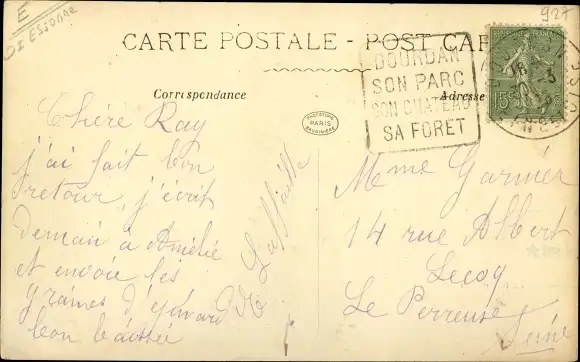 E
D. ESSONNE
927
CARTE POSTALE - POST CAR
Correspondance
Adresse
PARIS
DOURDAN
SON PARC
SON CHATEAU
SA FORET
15c
Chère Ray
j'ai fait bon
retour, j'écrit
demain à Amélie
et envoie les
graines d'épinard
bon baisée
Mme Garnier
14 rue Albert
Le Perreux
Seine